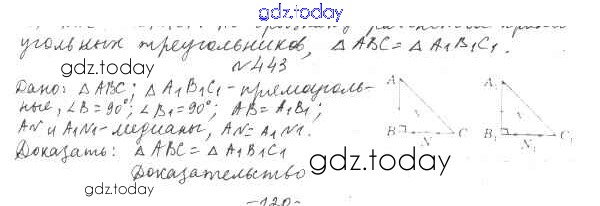 gdz.today
угольных треугольников, △ABC = △A₁B₁C₁.
№443
gdz.today
Дано: △ABC; △A₁B₁C₁ - прямоуголь-
ные, ∠B = 90°; ∠B₁ = 90°; AB = A₁B₁;
AN и A₁N₁ - медианы, AN = A₁N₁.
Доказать: △ABC = △A₁B₁C₁
gdz.today
Доказательство
gdz.today
A
B N C
A₁
B₁ N₁ C₁